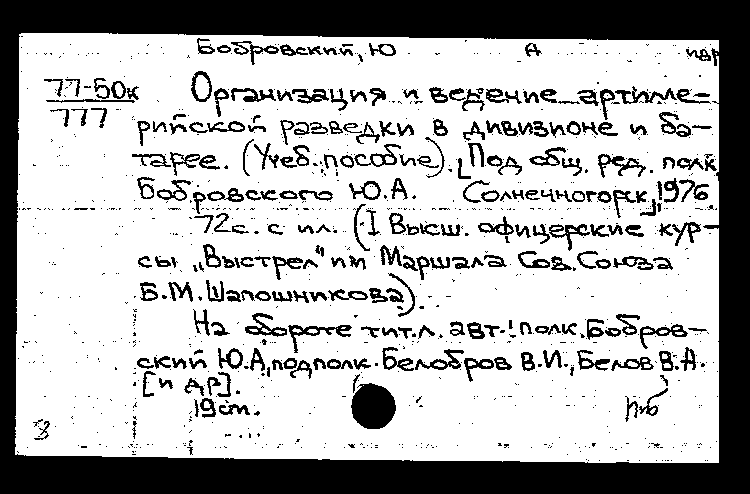 Бобровский, Ю А и др
77-50к
777
Организация и ведение артилле-
рийской разведки в дивизионе и ба-
тарее. (Учеб. пособие). [Под общ. ред. полк.
Бобровского Ю.А. Солнечногорск], 1976.
72с. с ил. (I Высш. офицерские кур-
сы „Выстрел" им Маршала Сов. Союза
Б.М. Шапошникова).
На обороте тит.л. авт.: полк. Бобров-
ский Ю.А, подполк. Белобров В.И., Белов В.А.
[и др].
19см.
8